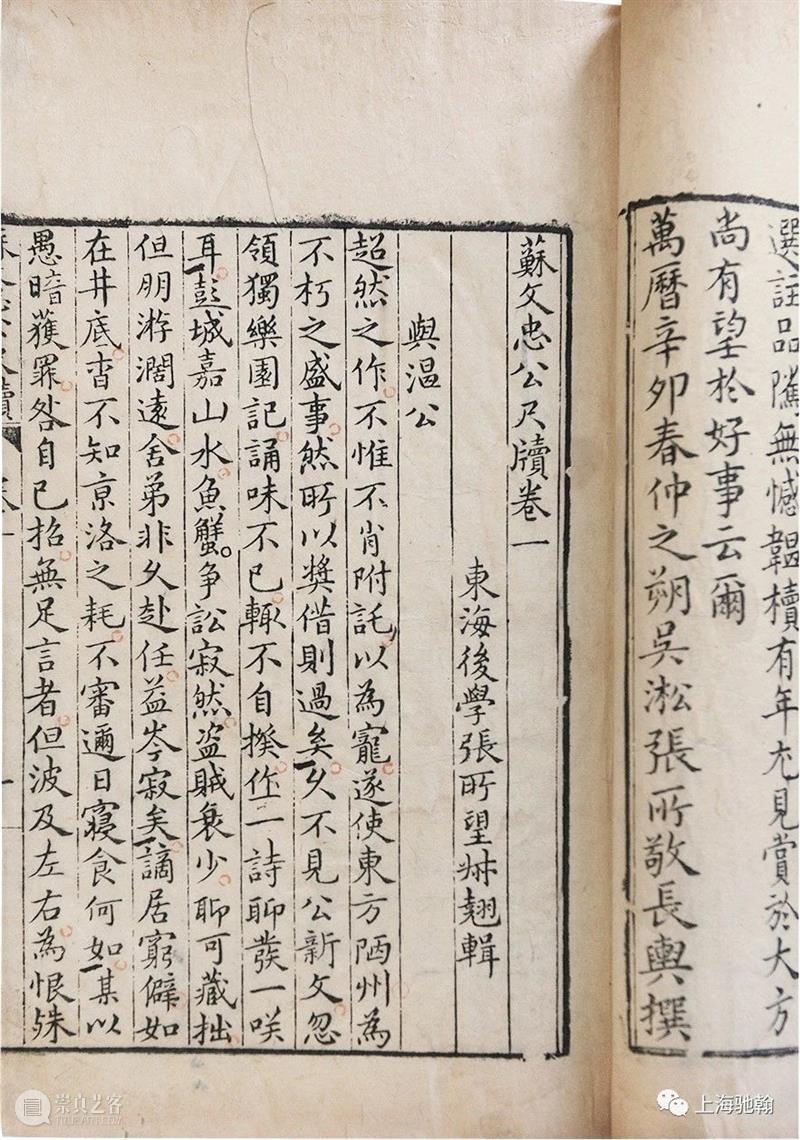 選註品隲無憾韞櫝有年尢見賞於大方
尚有望於好事云爾
萬曆辛卯春仲之朔吳淞張所敬長輿撰
蘇文忠公尺牘卷一
東海後學張所望叔翹輯
與温公
超然之作不惟不肖附託以為寵遂使東方陋州為
不朽之盛事然所以獎借則過矣久不見公新文忽
領獨樂園記誦味不已輒不自揆作一詩聊發一咲
耳彭城嘉山水魚蟹爭訟寂然盜賊衰少聊可藏拙
但朋游濶遠舍弟非久赴任益岑寂矣謫居窮僻如
在井底杳不知京洛之耗不審邇日寢食何如某以
愚暗獲罪咎自已招無足言者但波及左右為恨殊
崇真艺客
TRUEART.COM
上海驰翰